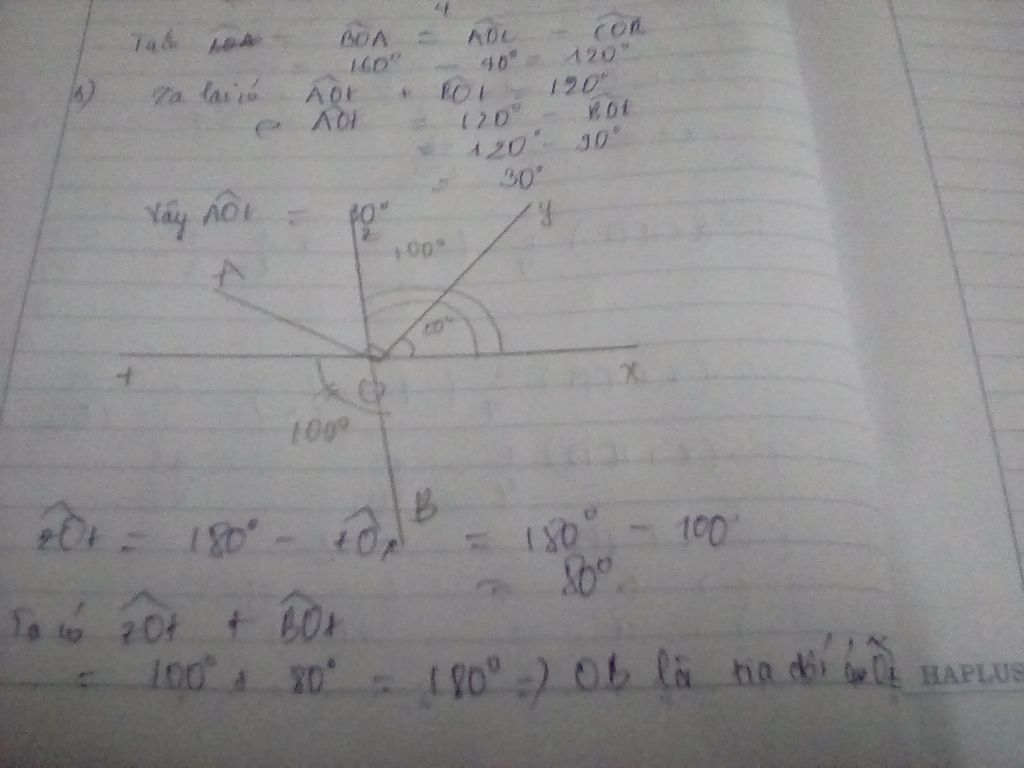 4
Ta có BOA = AOC - COB
= 160° - 40° = 120°
b) Ta lại có AOt + BOt = 120°
AOt = 120° - BOt
= 120° - 90°
= 30°
Vậy AOt = 30°
z y
100°
A
50°
t x
O
100°
B
zOt = 180° - zOx = 180° - 100
= 80°
Ta có zOt + BOt
= 100° + 80° = 180° => OB là tia đối của Oz
HAPLUS